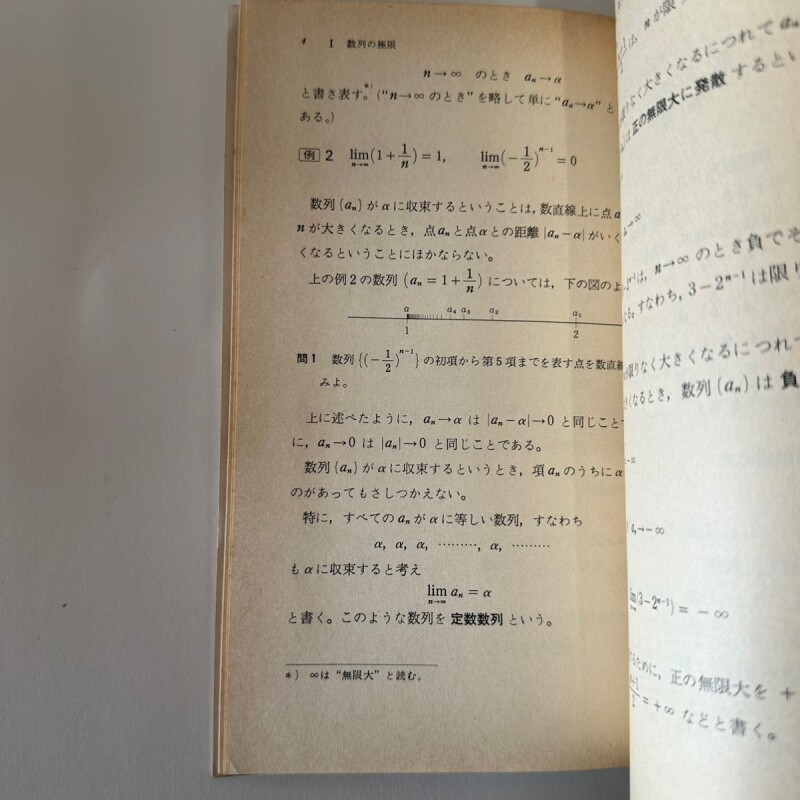 4 I 数列の極限
n→∞ のとき aₙ→α
と書き表す。*) (“n→∞ のとき”を略して単に“aₙ→α”と
ある。)
例 2 lim_{n→∞}(1+1/n)=1, lim_{n→∞}(-1/2)^{n-1}=0
数列{aₙ}がαに収束するということは,数直線上に点a
nが大きくなるとき,点aₙと点αとの距離|aₙ-α|がいく
くなるということにほかならない。
上の例2の数列{aₙ=1+1/n}については,下の図のよ
α a₄ a₃ a₂ a₁
1 2
問1 数列{(-1/2)^{n-1}}の初項から第5項までを表す点を数直線
みよ。
上に述べたように,aₙ→α は |aₙ-α|→0 と同じこと
に,aₙ→0 は |aₙ|→0 と同じことである。
数列{aₙ}がαに収束するというとき,項aₙのうちにα
のがあってもさしつかえない。
特に,すべてのaₙがαに等しい数列,すなわち
α, α, α, ………, α, ………
もαに収束すると考え
lim_{n→∞} aₙ=α
と書く。このような数列を 定数数列 という。
*) ∞は“無限大”と読む。
は, nが限
限りなく大きくなるにつれてaₙ
は 正の無限大に発散 するとい
→∞
は, n→∞ のとき負でそ
る。すなわち, 3-2^{n-1} は限り
限りなく大きくなるにつれて
くなるとき, 数列{aₙ}は 負
aₙ→-∞
(3-2^{n-1})=-∞
するために, 正の無限大を +
=+∞ などと書く。